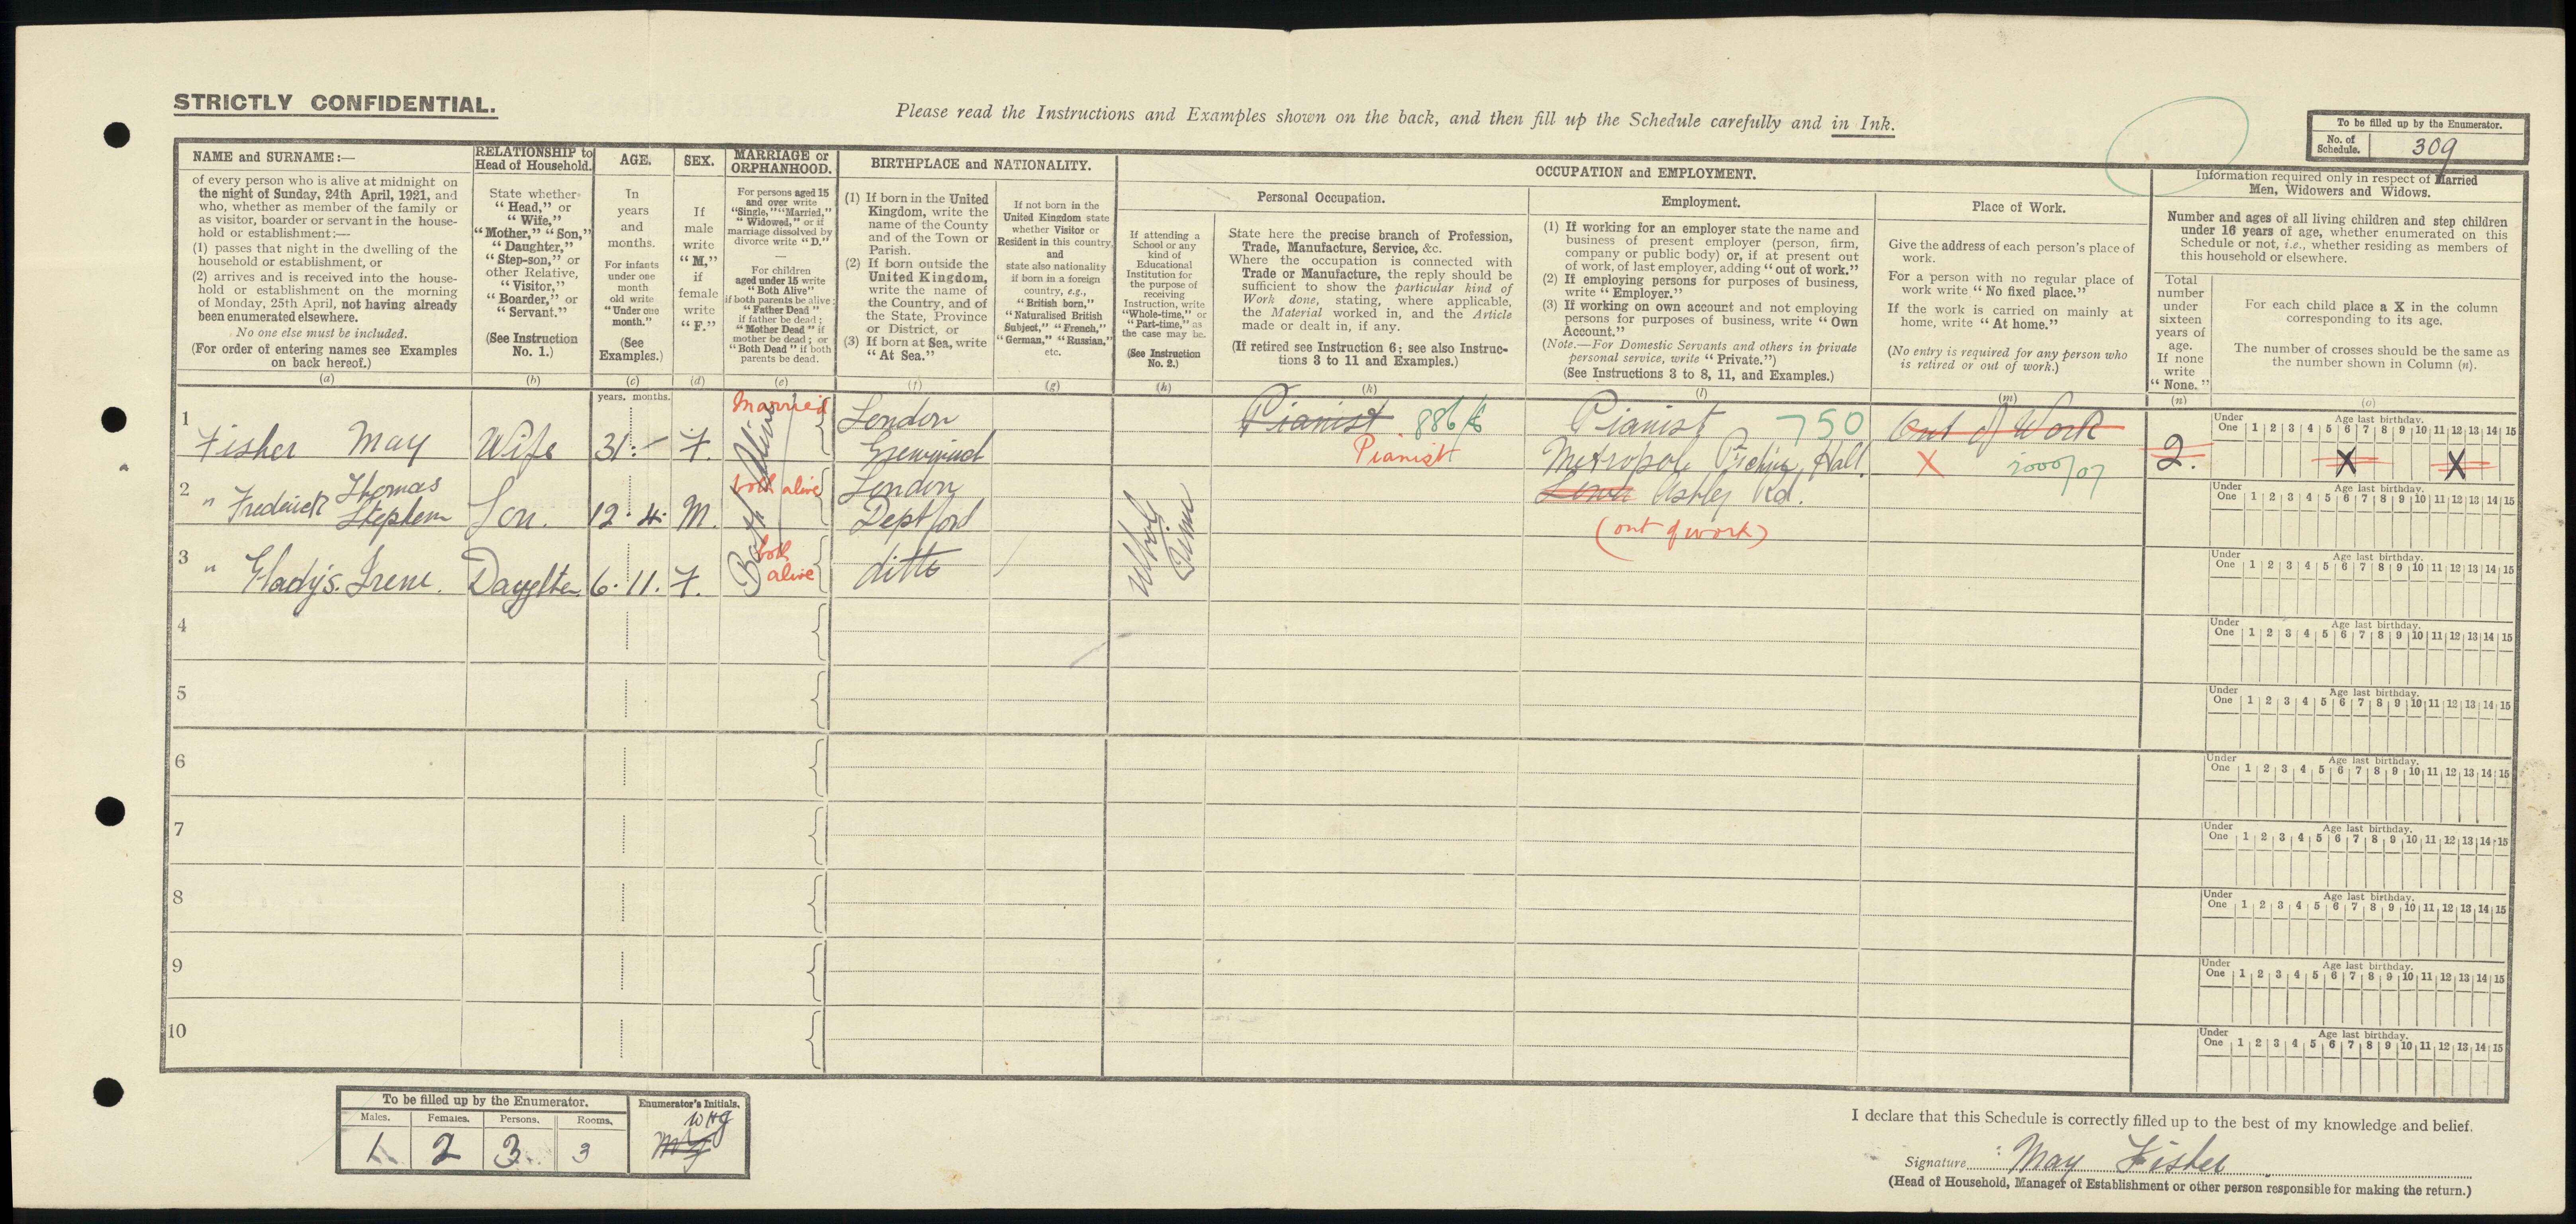 STRICTLY CONFIDENTIAL.
Please read the Instructions and Examples shown on the back, and then fill up the Schedule carefully and in Ink.
To be filled up by the Enumerator.
No. of Schedule. 309
NAME and SURNAME:—
of every person who is alive at midnight on
the night of Sunday, 24th April, 1921, and
who, whether as member of the family or
as visitor, boarder or servant in the house-
hold or establishment:—
(1) passes that night in the dwelling of the
household or establishment, or
(2) arrives and is received into the house-
hold or establishment on the morning
of Monday, 25th April, not having already
been enumerated elsewhere.
No one else must be included.
(For order of entering names see Examples
on back hereof.)
(a)
RELATIONSHIP to
Head of Household.
State whether
"Head," or
"Wife,"
"Mother," "Son,"
"Daughter,"
"Step-son," or
other Relative,
"Visitor,"
"Boarder," or
"Servant."
(See Instruction
No. 1.)
(b)
AGE.
In
years
and
months.
For infants
under one
month
old write
"Under one
month."
(See
Examples.)
(c)
SEX.
If
male
write
"M,"
if
female
write
"F."
(d)
MARRIAGE or
ORPHANHOOD.
For persons aged 15
and over write
"Single," "Married,"
"Widowed," or if
marriage dissolved by
divorce write "D."
—
For children
aged under 15 write
"Both Alive"
if both parents be alive;
"Father Dead"
if father be dead;
"Mother Dead" if
mother be dead; or
"Both Dead" if both
parents be dead.
(e)
BIRTHPLACE and NATIONALITY.
(1) If born in the United
Kingdom, write the
name of the County
and of the Town or
Parish.
(2) If born outside the
United Kingdom,
write the name of
the Country, and of
the State, Province
or District, or
(3) If born at Sea, write
"At Sea."
(f)
If not born in the
United Kingdom state
whether Visitor or
Resident in this country,
and
state also nationality
if born in a foreign
country, e.g.,
"British born,"
"Naturalised British
Subject," "French,"
"German," "Russian,"
etc.
(g)
OCCUPATION AND EMPLOYMENT.
Personal Occupation.
If attending a
School or any
kind of
Educational
Institution for
the purpose of
receiving
Instruction, write
"Whole-time," or
"Part-time," as
the case may be.
(See Instruction
No. 2.)
(h)
State here the precise branch of Profession,
Trade, Manufacture, Service, &c.
Where the occupation is connected with
Trade or Manufacture, the reply should be
sufficient to show the particular kind of
Work done, stating, where applicable,
the Material worked in, and the Article
made or dealt in, if any.
(If retired see Instruction 6; see also Instruc-
tions 3 to 11 and Examples.)
(k)
Employment.
(1) If working for an employer state the name and
business of present employer (person, firm,
company or public body) or, if at present out
of work, of last employer, adding "out of work."
(2) If employing persons for purposes of business,
write "Employer."
(3) If working on own account and not employing
persons for purposes of business, write "Own
Account."
(Note.—For Domestic Servants and others in private
personal service, write "Private.")
(See Instructions 3 to 8, 11, and Examples.)
(l)
Place of Work.
Give the address of each person's place of
work.
For a person with no regular place of
work write "No fixed place."
If the work is carried on mainly at
home, write "At home."
(No entry is required for any person who
is retired or out of work.)
(m)
Information required only in respect of Married
Men, Widowers and Widows.
Number and ages of all living children and step children
under 16 years of age, whether enumerated on this
Schedule or not, i.e., whether residing as members of
this household or elsewhere.
Total
number
under
sixteen
years of
age.
If none
write
"None."
(n)
For each child place a X in the column
corresponding to its age.
The number of crosses should be the same as
the number shown in Column (n).
(o)
years. months.
1 Fisher May Wife 31 – F. Married London Pianist 886/6 Pianist 750 Out of Work
Pianist Metropole Hall X 2000/07 2. X X
2 " Frederick Thomas Stephen Son. 12 . 4 . M. both alive London Ashley Rd.
Deptford
Both Alive
(out of work)
3 " Gladys. Irene. Daughter. 6 . 11 . F. both alive ditto
Under One 1 2 3 4 5 6 7 8 9 10 11 12 13 14 15
Age last birthday.
Under One 1 2 3 4 5 6 7 8 9 10 11 12 13 14 15
Age last birthday.
Under One 1 2 3 4 5 6 7 8 9 10 11 12 13 14 15
Age last birthday.
4
Under One 1 2 3 4 5 6 7 8 9 10 11 12 13 14 15
Age last birthday.
5
Under One 1 2 3 4 5 6 7 8 9 10 11 12 13 14 15
Age last birthday.
6
Under One 1 2 3 4 5 6 7 8 9 10 11 12 13 14 15
Age last birthday.
7
Under One 1 2 3 4 5 6 7 8 9 10 11 12 13 14 15
Age last birthday.
8
Under One 1 2 3 4 5 6 7 8 9 10 11 12 13 14 15
Age last birthday.
9
Under One 1 2 3 4 5 6 7 8 9 10 11 12 13 14 15
Age last birthday.
10
Under One 1 2 3 4 5 6 7 8 9 10 11 12 13 14 15
Age last birthday.
To be filled up by the Enumerator.
Males. Females. Persons. Rooms.
1 2 3 3
Enumerator's Initials.
WHG
I declare that this Schedule is correctly filled up to the best of my knowledge and belief.
Signature May Fisher
(Head of Household, Manager of Establishment or other person responsible for making the return.)